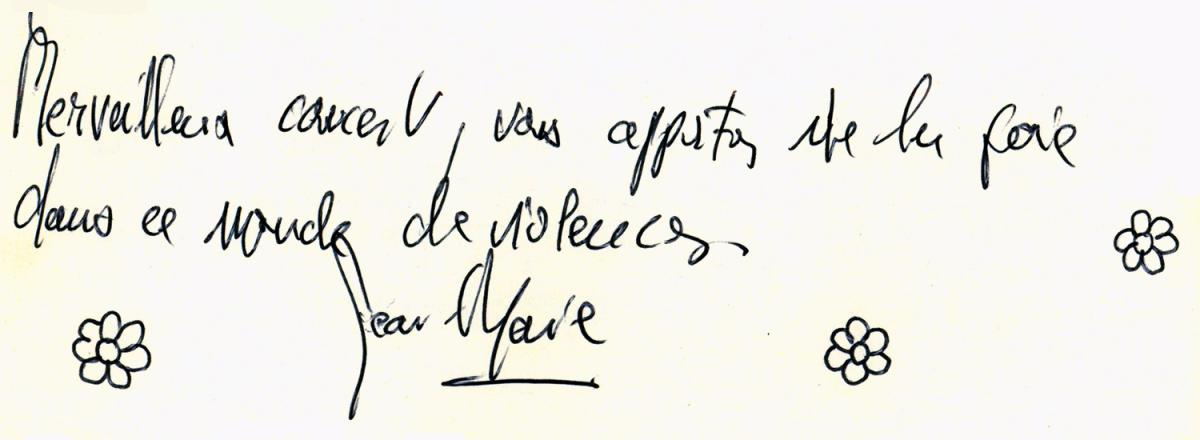 Merveilleux concert, vous apportez de la joie
dans ce monde de violences
Jean Marie